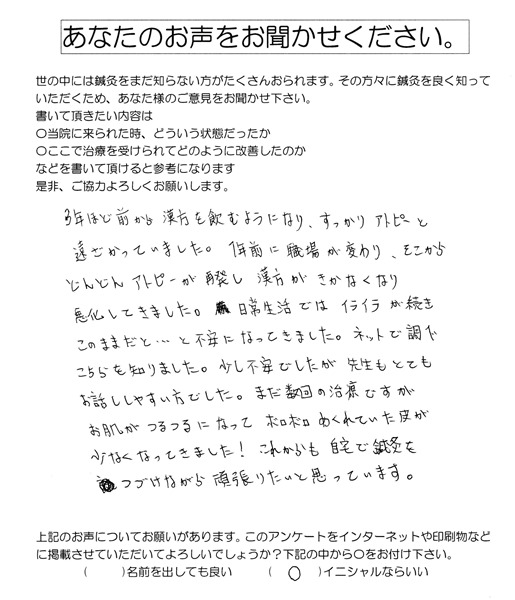 あなたのお声をお聞かせください。
世の中には鍼灸をまだ知らない方がたくさんおられます。その方々に鍼灸を良く知って
いただくため、あなた様のご意見をお聞かせ下さい。
書いて頂きたい内容は
○当院に来られた時、どういう状態だったか
○ここで治療を受けられてどのように改善したのか
などを書いて頂けると参考になります
是非、ご協力よろしくお願いします。
3年ほど前から漢方を飲むようになり、すっかりアトピーと
遠ざかっていました。1年前に職場が変わり、そこから
どんどんアトピーが再発し漢方がきかなくなり
悪化してきました。日常生活ではイライラが続き
このままだと…と不安になってきました。ネットで調べ
こちらを知りました。少し不安でしたが先生もとても
お話ししやすい方でした。まだ数回の治療ですが
お肌がつるつるになってボロボロめくれていた皮が
少なくなってきました！これからも自宅で鍼灸を
つづけながら頑張りたいと思っています。
上記のお声についてお願いがあります。このアンケートをインターネットや印刷物など
に掲載させていただいてよろしいでしょうか？下記の中から○をお付け下さい。
(　　)名前を出しても良い　　(　○　)イニシャルならいい